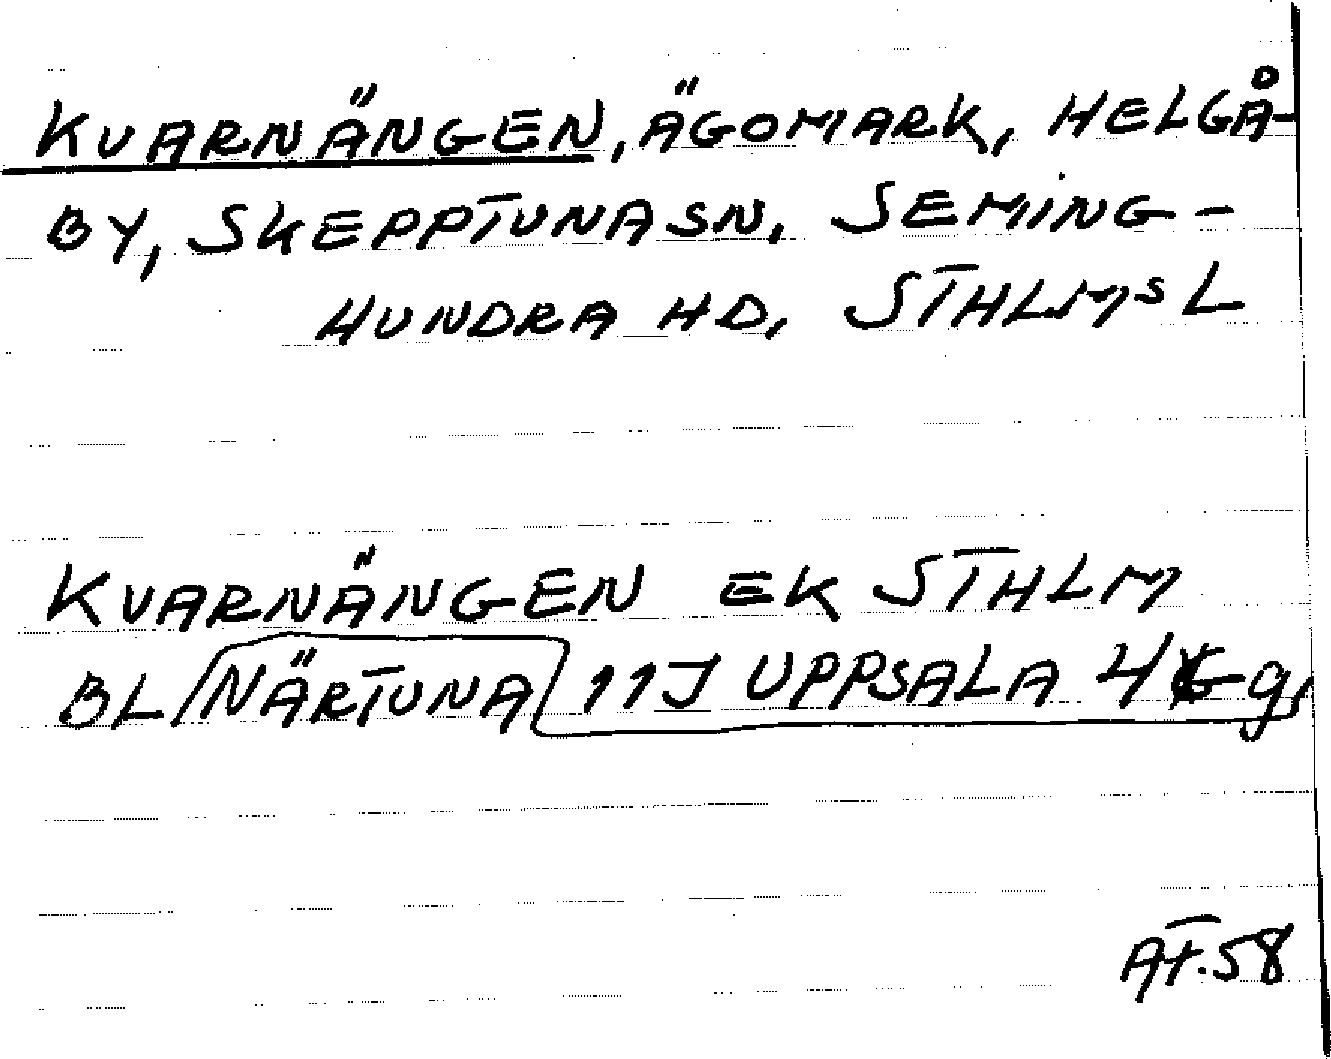 KVARNÄNGEN, ÄGOMARK, HELGÅ-
BY, SKEPPTUNA SN, SEMING-
HUNDRA HD, STHLMS L
KVARNÄNGEN EK STHLM
BL NÄRTUNA 11J UPPSALA 4 g
AT.58